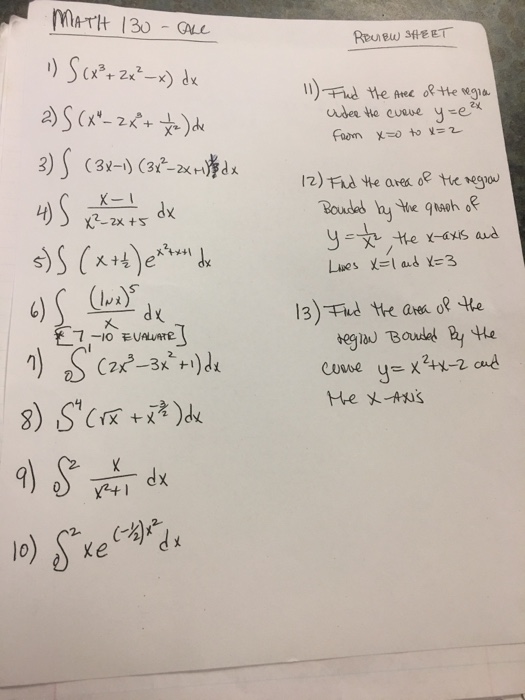 MATH 130 - CALC
REVIEW SHEET
1) ∫(x³ + 2x² - x) dx
2) ∫(x⁴ - 2x³ + 1/x²) dx
3) ∫ (3x-1) (3x²-2x+1) dx
4) ∫ x-1 / x²-2x+5 dx
5) ∫ (x+½) e^(x²+x+1) dx
6) ∫ (lnx)⁵ / x dx
* [7-10 EVALUATE]
7) ₀∫¹ (2x³-3x²+1) dx
8) ₁∫⁴ (√x + x^(-3/2)) dx
9) ₀∫² x / x²+1 dx
10) ₀∫² xe^((-½)x²) dx
11) Find the Area of the region
under the curve y=e^(2x)
from x=0 to x=2
12) Find the area of the region
Bounded by the graph of
y = 1/x², the x-axis and
Lines x=1 and x=3
13) Find the area of the
region Bounded By the
curve y= x²+x-2 and
the x-Axis